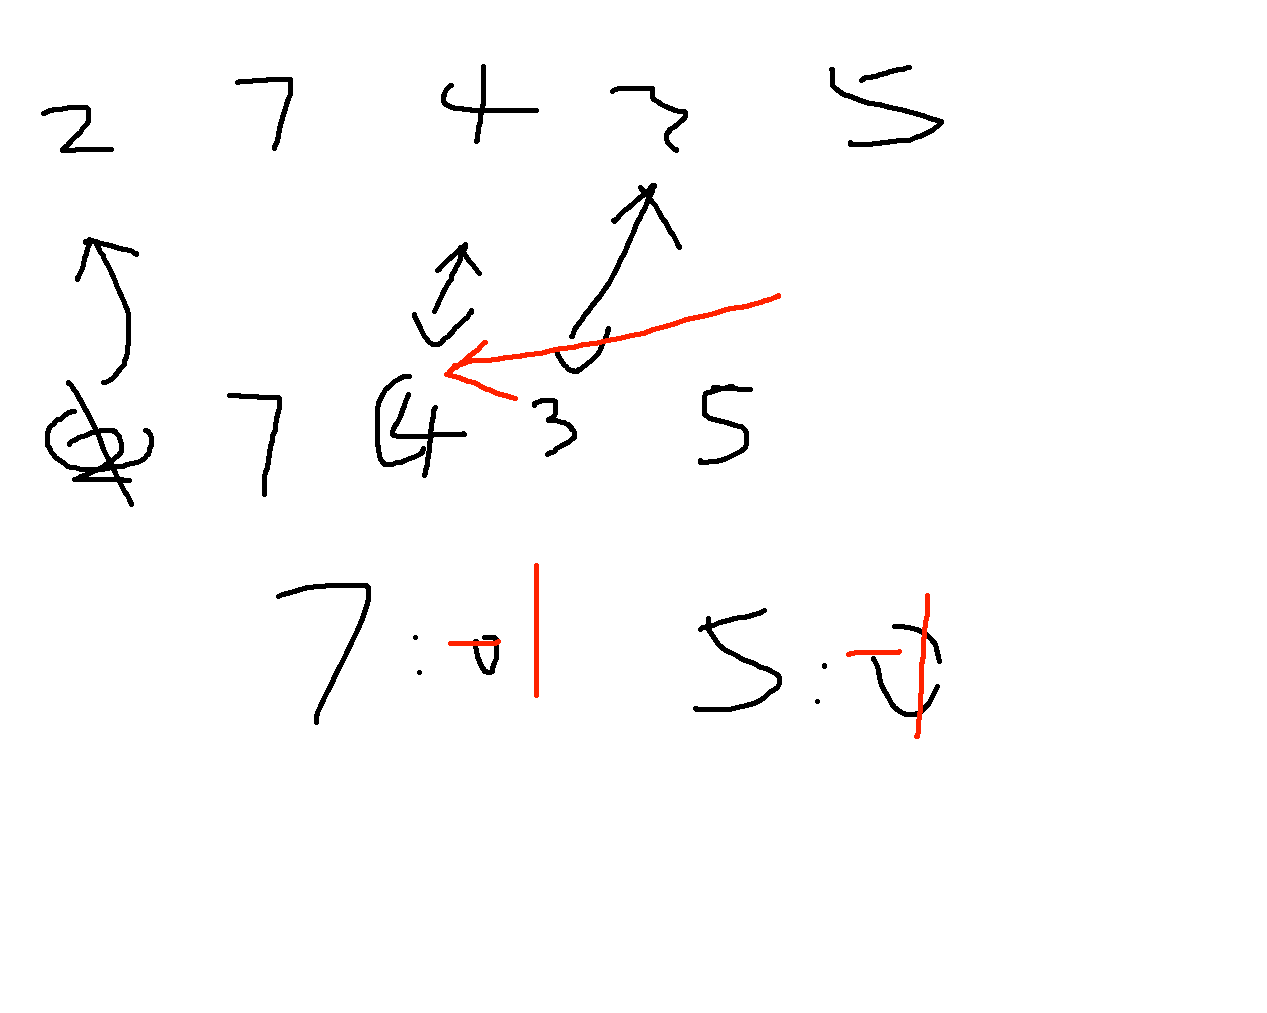 2 7 4 3 5
2 7 4 3 5
7 : 0 5 : 0